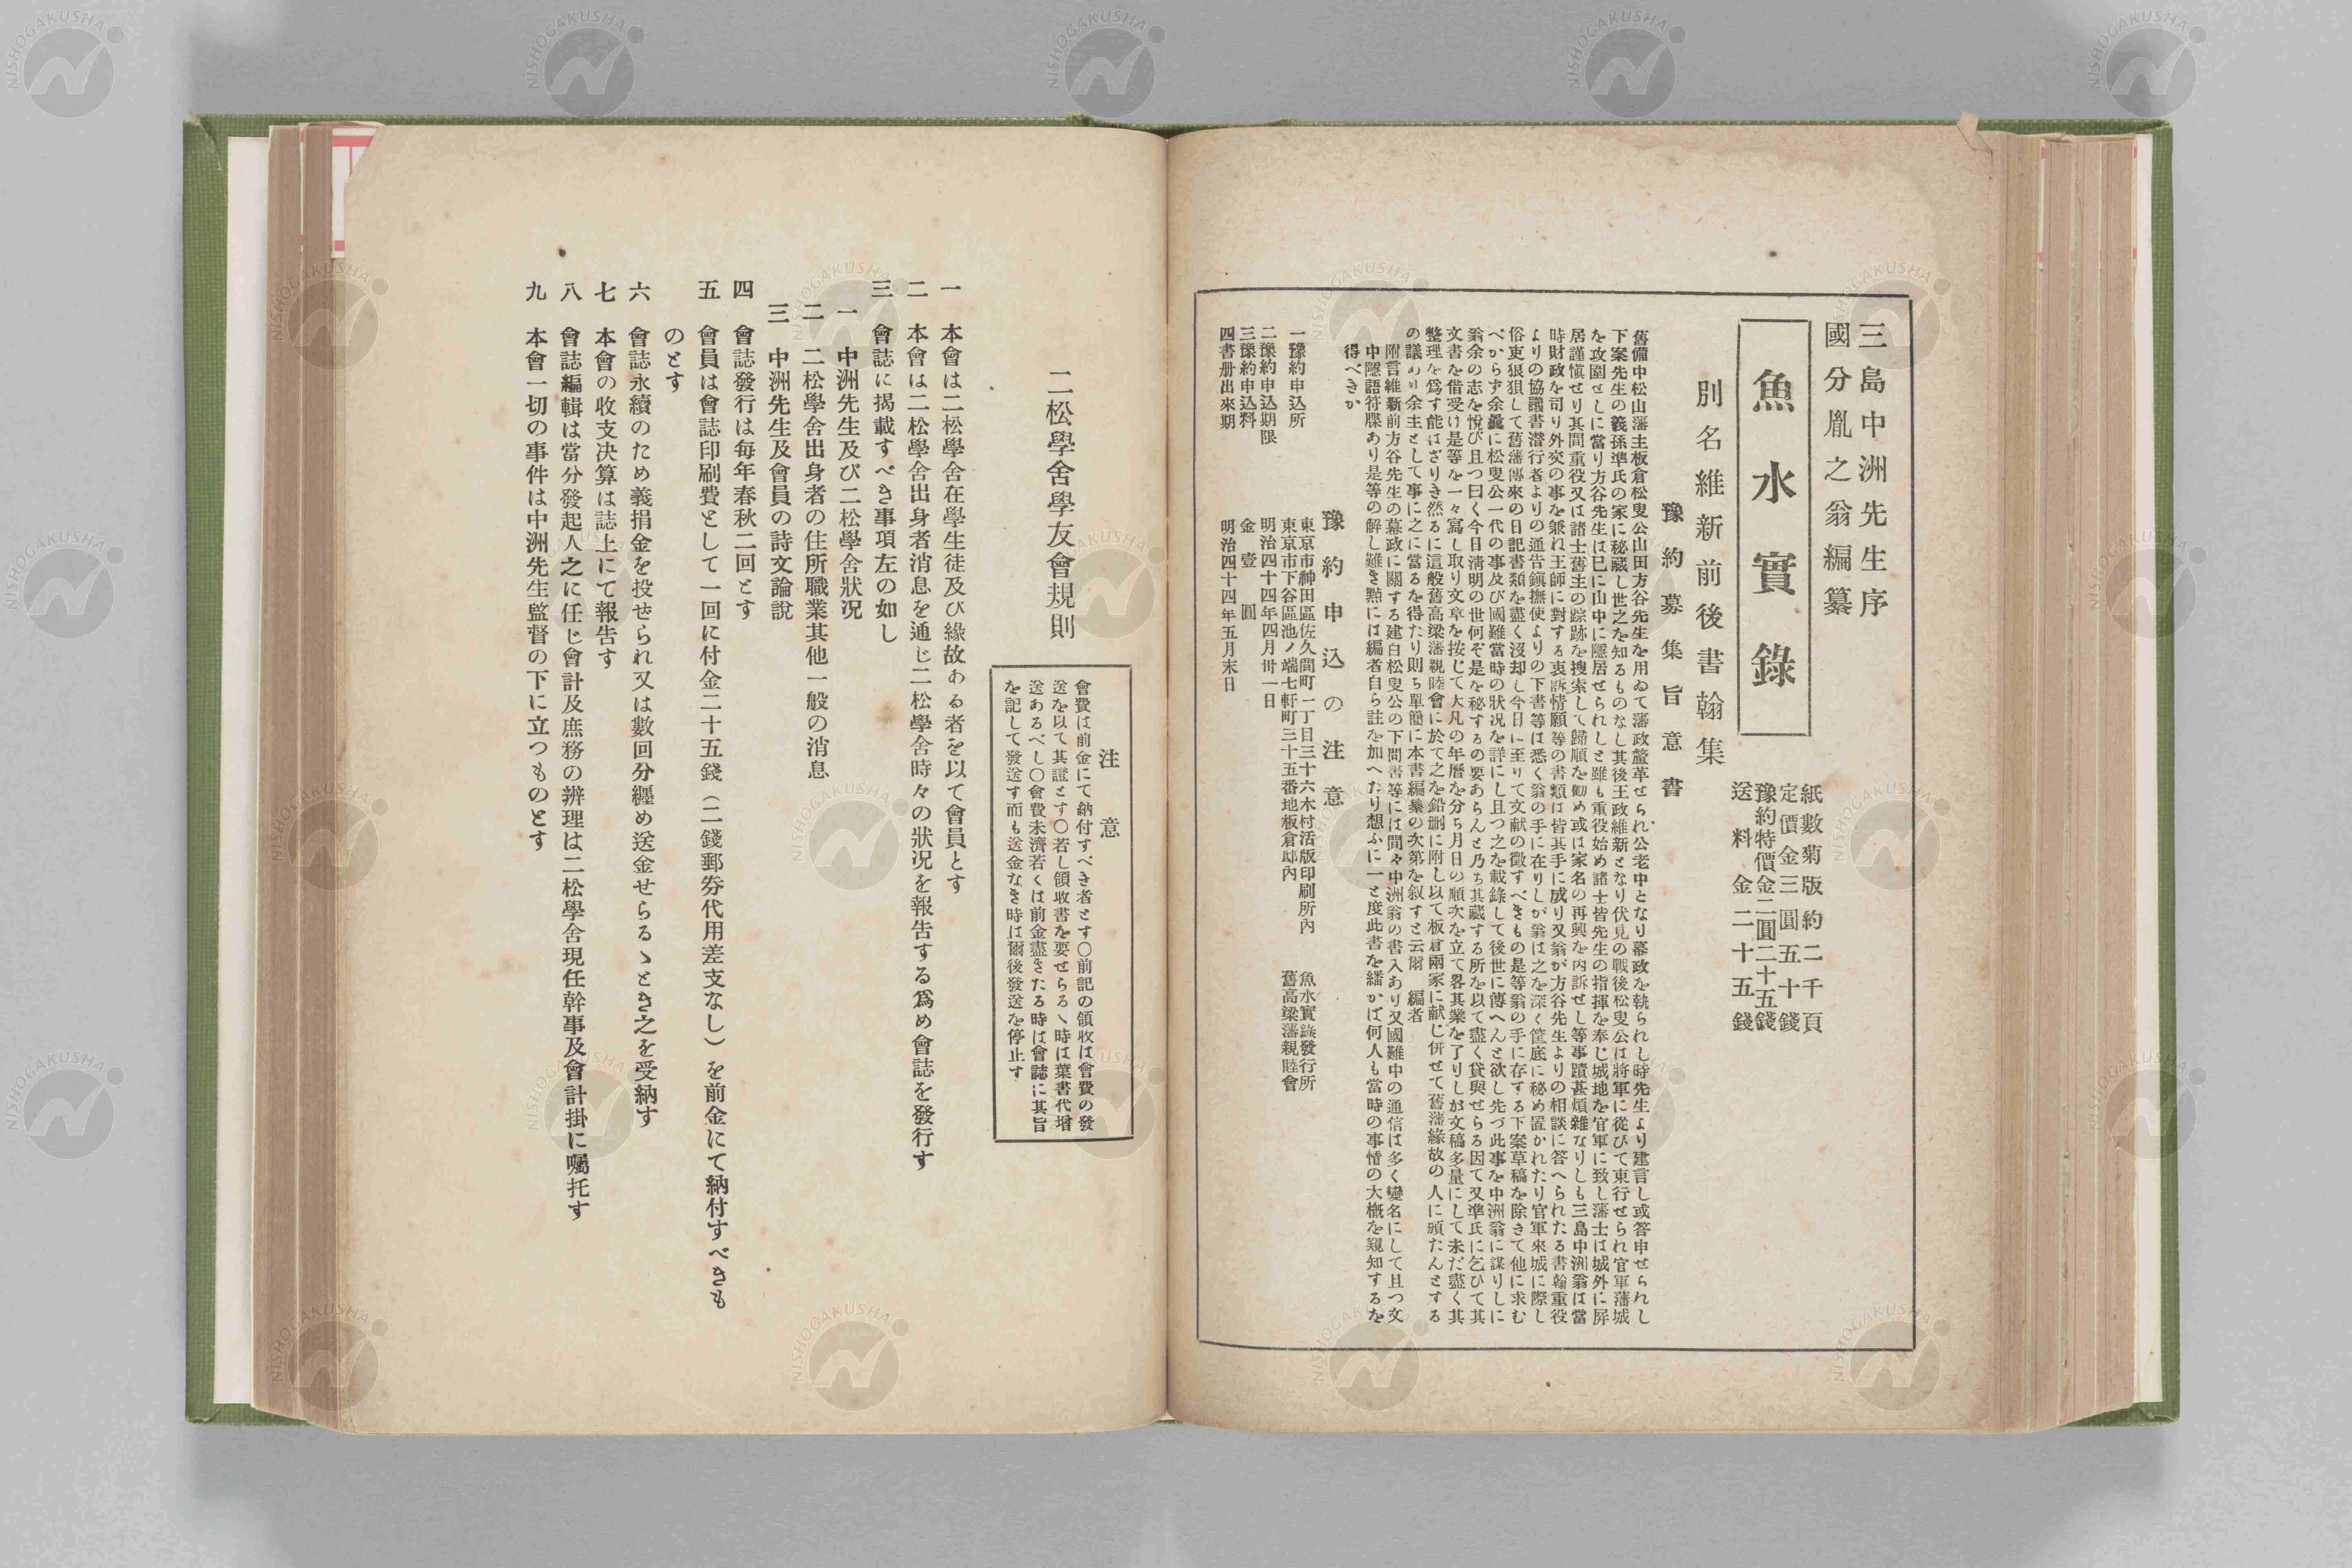 三島中洲先生序
國分胤之翁編纂
魚水實錄
紙數菊版約二千頁
定價金三圓五十錢
豫約特價金二圓二十五錢
送料金二十五錢
別名維新前後書翰集
豫約募集旨意書
舊備中松山藩主板倉松叟公山田方谷先生を用ゐて藩政釐革せられ公老中となり幕政を執られし時先生より建言し或答申せられし
下案先生の義孫準氏の家に秘藏し世之を知るものなし其後王政維新となり伏見の戰後松叟公は將軍に從ひて東行せられ官軍藩城
を攻圍せしに當り方谷先生は已に山中に隱居せられしと雖も重役始め諸士皆先生の指揮を奉じ城地を官軍に致し藩士は城外に屏
居謹愼せり其間重役又は諸士舊主の踪跡を搜索して歸順を勸め或は家名の再興を内訴せし等事蹟甚煩雜なりしも三島中洲翁は當
時財政を司り外交の事を兼ね王師に對する哀訴情願等の書類は皆其手に成り又翁が方谷先生よりの相談に答へられたる書翰重役
よりの協議書潜行者よりの通告鎭撫使よりの下書等は悉く翁の手に在りしが翁は之を深く筐底に秘め置かれたり官軍來城に際し
俗吏狼狽して舊藩傳來の日記書類を盡く沒却し今日に至りて文献の徵すべきもの是等翁の手に存する下案草稿を除きて他に求む
べからず余曩に松叟公一代の事及び國難當時の狀况を詳にし且つ之を載錄して後世に傳へんと欲し先づ此事を中洲翁に謀りしに
翁余の志を悅び且つ曰く今日淸明の世何ぞ是を秘するの要あらんと乃ち其藏する所を以て盡く貸與せらる因て又準氏に乞ひて其
文書を借受け是等を一々寫し取り文章を按じて大凡の年曆を分ち月日の順次を立て畧其業を了りしが文稿多量にして未だ盡く其
整理を爲す能はざりき然るに這般舊高梁藩親睦會に於て之を鉛刪に附し以て板倉兩家に献じ併せて舊藩緣故の人に頒たんとする
の議あり余主として事に之に當るを得たり則ち單簡に本書編纂の次第を叙すと云爾　編者
附言維新前方谷先生の幕政に關する建白松叟公の下問書等には間々中洲翁の書入あり又國難中の通信は多く變名にして且つ文
中隱語符牒あり是等の解し難き㸃には編者自ら註を加へたり想ふに一と度此書を繙かば何人も當時の事情の大槪を窺知するを
得べきか
豫約申込の注意
一豫約申込所　東京市神田區佐久間町一丁目三十六木村活版印刷所內　魚水實錄發行所
東京市下谷區池ノ端七軒町三十五番地板倉邸內　舊高梁藩親睦會
二豫約申込期限　明治四十四年四月卅一日
三豫約申込料　金壹圓
四書册出來期　明治四十四年五月末日
注意
會費は前金にて納付すべき者とす〇前記の領收は會費の發
送を以て其證とす〇若し領收書を要せらるゝ時は葉書代增
送あるべし〇會費未濟若くは前金盡きたる時は會誌に其旨
を記して發送す而も送金なき時は爾後發送を停止す
二松學舍學友會規則
一　本會は二松學舍在學生徒及び緣故ある者を以て會員とす
二　本會は二松學舍出身者消息を通じ二松學舍時々の狀况を報告する爲め會誌を發行す
三　會誌に揭載すべき事項左の如し
一　中洲先生及び二松學舍狀况
二　二松學舍出身者の住所職業其他一般の消息
三　中洲先生及會員の詩文論說
四　會誌發行は每年春秋二回とす
五　會員は會誌印刷費として一回に付金二十五錢（二錢郵券代用差支なし）を前金にて納付すべきも
のとす
六　會誌永續のため義捐金を投せられ又は數回分纒め送金せらるゝとき之を受納す
七　本會の收支決算は誌上にて報告す
八　會誌編輯は當分發起人之に任じ會計及庶務の辨理は二松學舍現任幹事及會計掛に囑托す
九　本會一切の事件は中洲先生監督の下に立つものとす